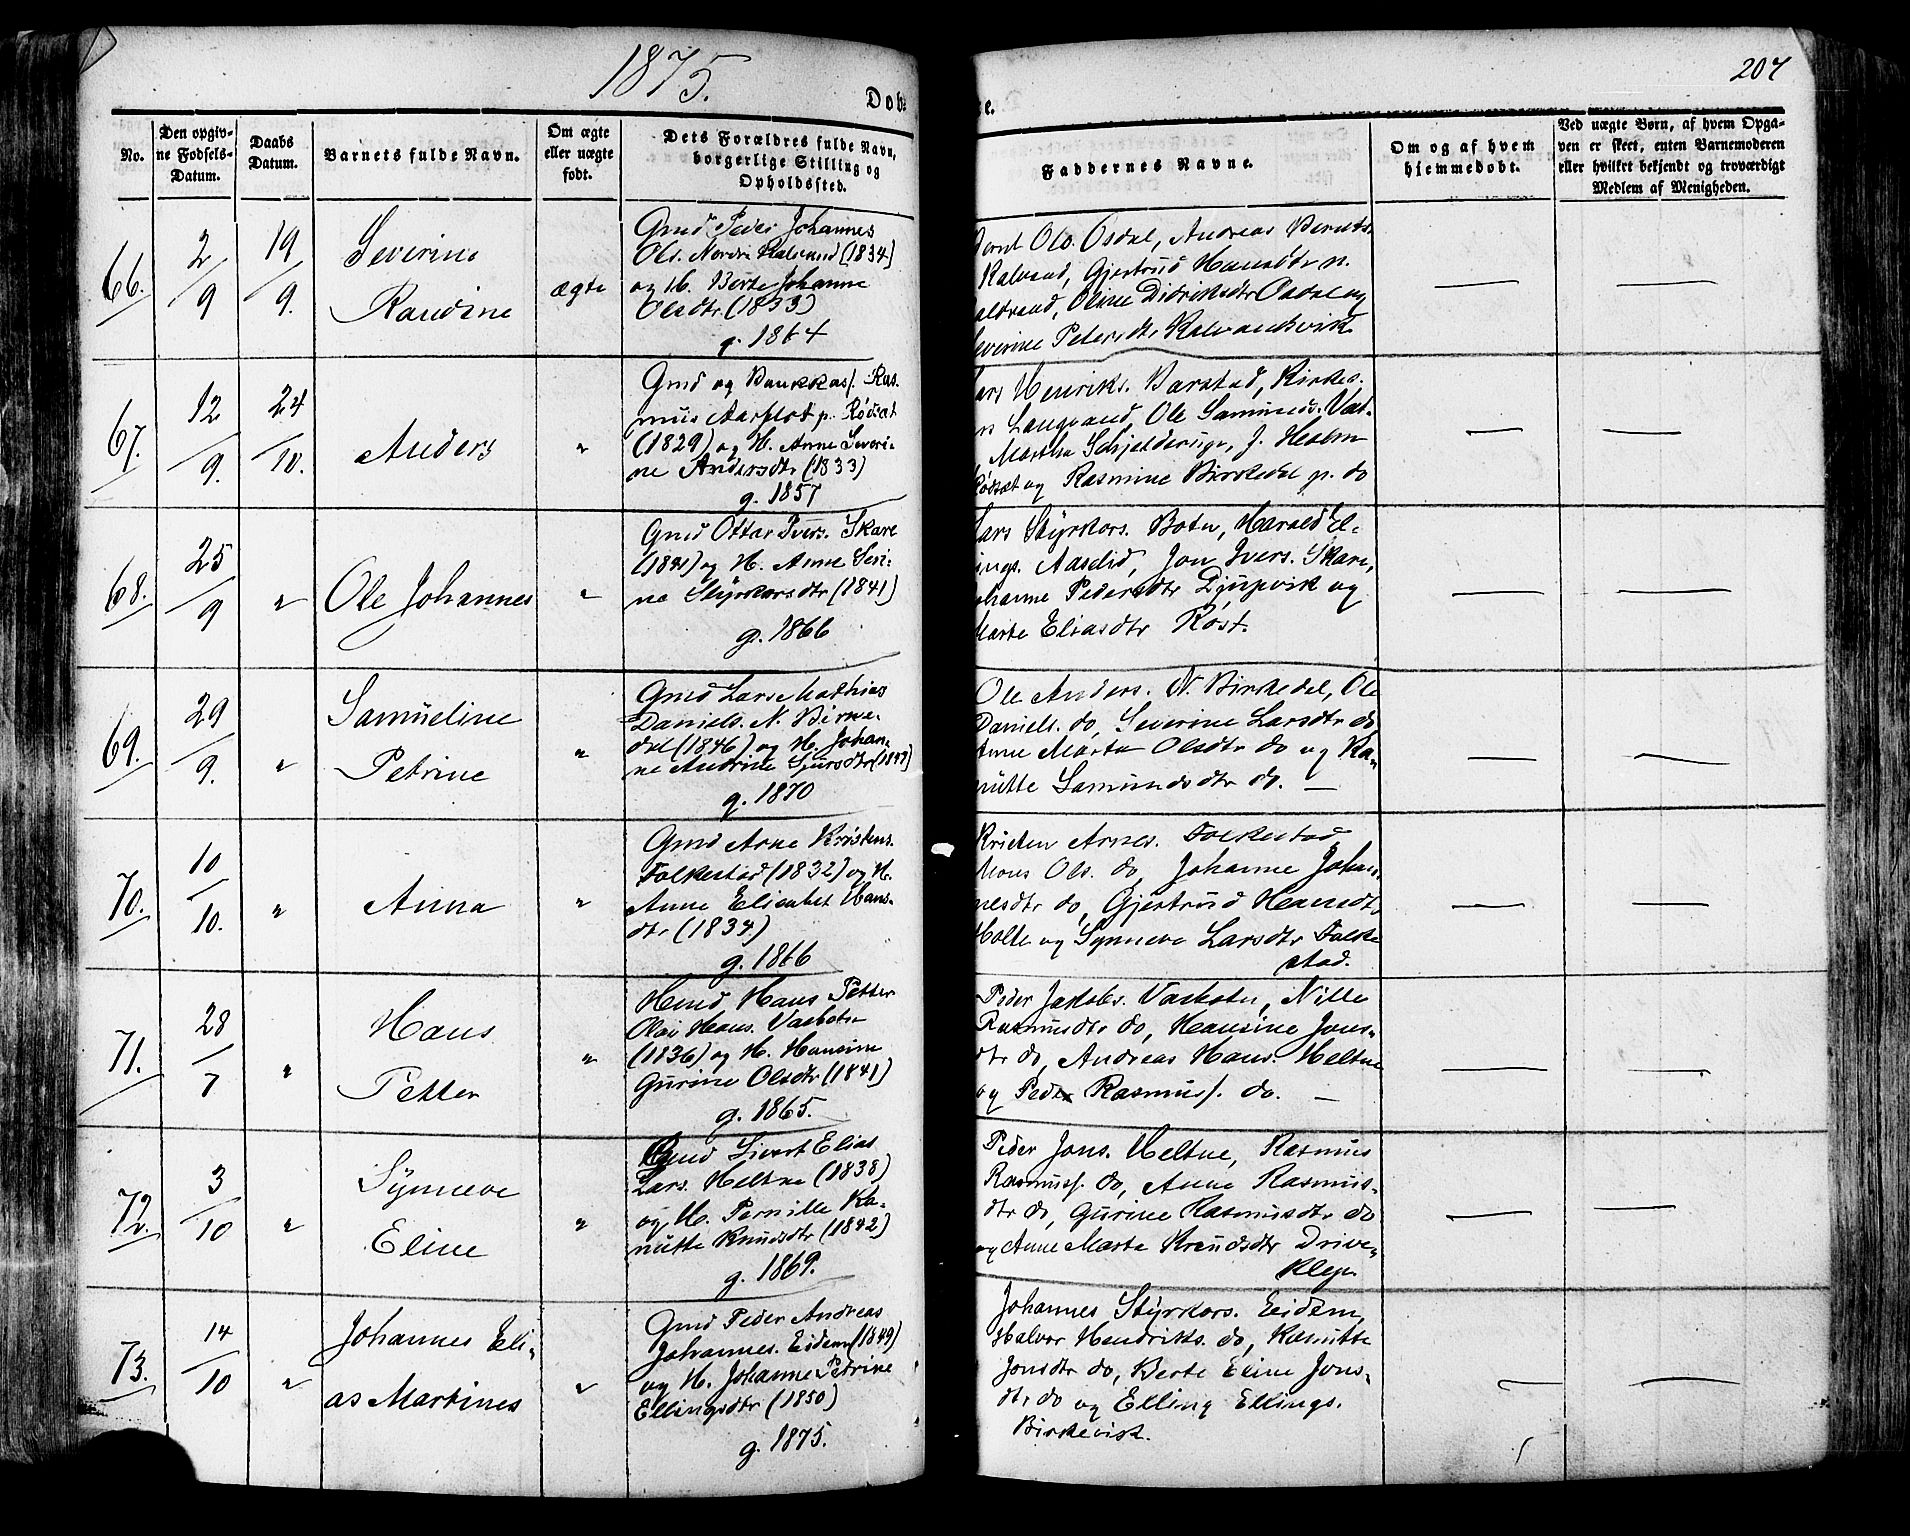 1875.
207
Dob
e.
No.
Den opgiv-
ne Fødsels-
Datum.
Daabs
Datum.
Barnets fulde Navn.
Om ægte
eller uægte
født.
Dets Forældres fulde Navn,
borgerlige Stilling og
Opholdssted.
Faddernes Navne.
Om og af hvem
hjemmedøbt.
Ved uægte Børn, af hvem Opga-
ven er skeet, enten Barnemoderen
eller hvilket bekjendt og troværdigt
Medlem af Menigheden.
66.
2/9
19/9.
Severine
Raudine
ægte
Gmd Peder Johannes
Ols. Nordre Kalvand (1834)
og H. Berte Johanne
Olsdtr (1833)
g. 1864
Bernt Ols. Osdal, Andreas Bernts.
Kalvand, Gjertrud Hansdtr n.
Kalvand, Oline Didriksdtr Osdal og
Severine Petersdtr Kalvandsvik
67.
12/9.
24/10.
Anders
"
Gmd og Bankkass. Ras-
mus Aarflot p. Rødsæt
(1829) og H. Anne Severi-
ne Andersdtr (1833)
g. 1857
Lars Henriks. Barstad, Kirkes.
Langvand, Ole Samunds. Vat-
Martha Schjelderup, J. Holm
Rødsæt og Rasmine Birkedal p. do
68.
25/9
"
Ole Johannes
"
Gmd Ottar Ivers. Skare
(1841) og H. Anne Seri-
ne Styrkorsdtr (1841)
g. 1866
Lars Styrkors. Boten, Harald El-
lings. Aaslid, Jon Ivers. Skare,
Johanne Pedersdtr Djupvik og
Marte Eliasdtr Røst.
69.
29/9.
"
Samueline
Petrine
"
Gmd Lars Mathias
Daniels. N. Birke-
dal (1846) og H. Johan-
ne Andrine Sjursdtr (1847)
g. 1870
Ole Anders. N. Birkedal, Ole
Daniels. do, Severine Larsdtr do
Anne Marta Olsdtr do og Ka-
nutte Samundsdtr do. —
70.
10/10.
"
Anna
"
Gmd Arne Kristens.
Folkestad (1832) og H.
Anne Elisabet Hans-
dtr (1834)
g. 1866
Kristen Arnes. Folkestad
Mons Ols. do, Johanne Johan-
nesdtr do, Gjertrud Hansdtr
Holte og Synneve Larsdtr Folke-
stad.
71.
28/7
"
Hans
Petter
"
Hmd Hans Petter
Olai Hans. Vasboten
(1836) og H. Hansine
Gurine Olsdtr (1841)
g. 1865.
Peder Jakobs. Vasboten, Nille
Rasmusdtr do, Hansine Jons-
dtr do, Andreas Hans. Heltne
og Peder Rasmuss. do. —
72.
3/10
"
Synneve
Eline
"
Gmd Sivert Elias
Lars. Heltne (1838)
og H. Pernille Ka-
nutte Knudsdtr (1842)
g. 1869.
Peder Jons. Heltne, Rasmus
Rasmuss. do, Anne Rasmus-
dtr do, Gurine Rasmusdtr do
og Anne Marta Knudsdtr Drive-
klep.
73.
14/10
"
Johannes Eli-
as Martines
"
Gmd Peder Andreas
Johannes. Eidem (1849)
og H. Johanne Petrine
Ellingsdtr (1850)
g. 1875.
Johannes Styrkors. Eidem,
Halvor Hendriks. do, Kanutte
Jonsdtr do, Berte Eline Jons-
dtr do og Elling Ellings.
Birkevik.